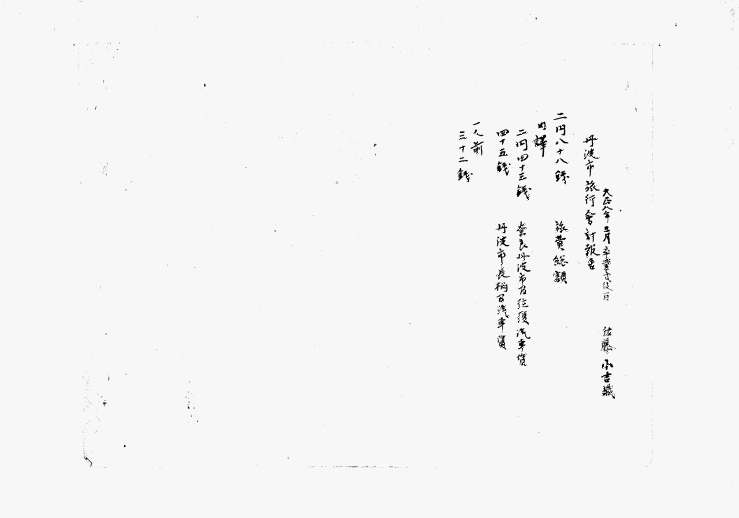 大正八年三月卒業生徒一同 佐藤小吉蔵
丹波市旅行會計報告
二円八十八銭 旅費総額
内譯
二円四十三銭 奈良丹波市 汽車賃
四十五銭 丹波市長柄間汽車賃
一人前
三十二銭